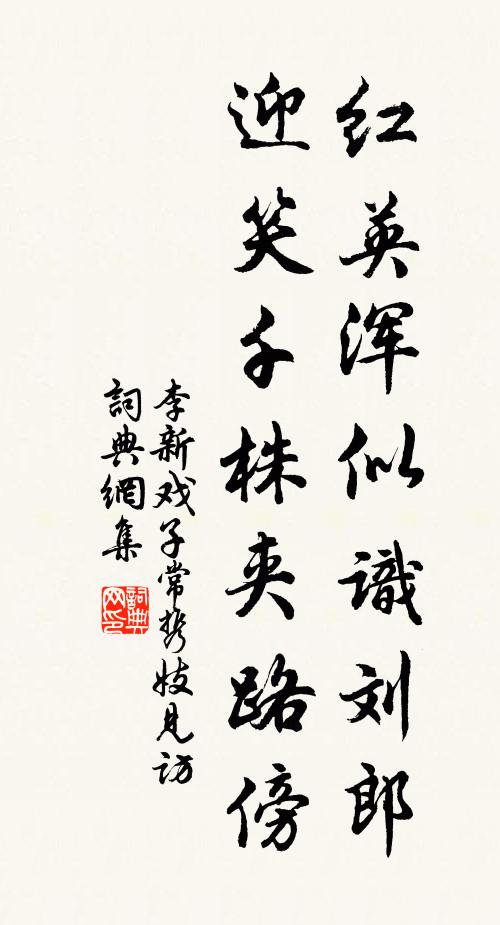 红英浑似識刘郎
迎笑千株夹路傍
李新戏子常携妓見访
詞典網集
詞典网印